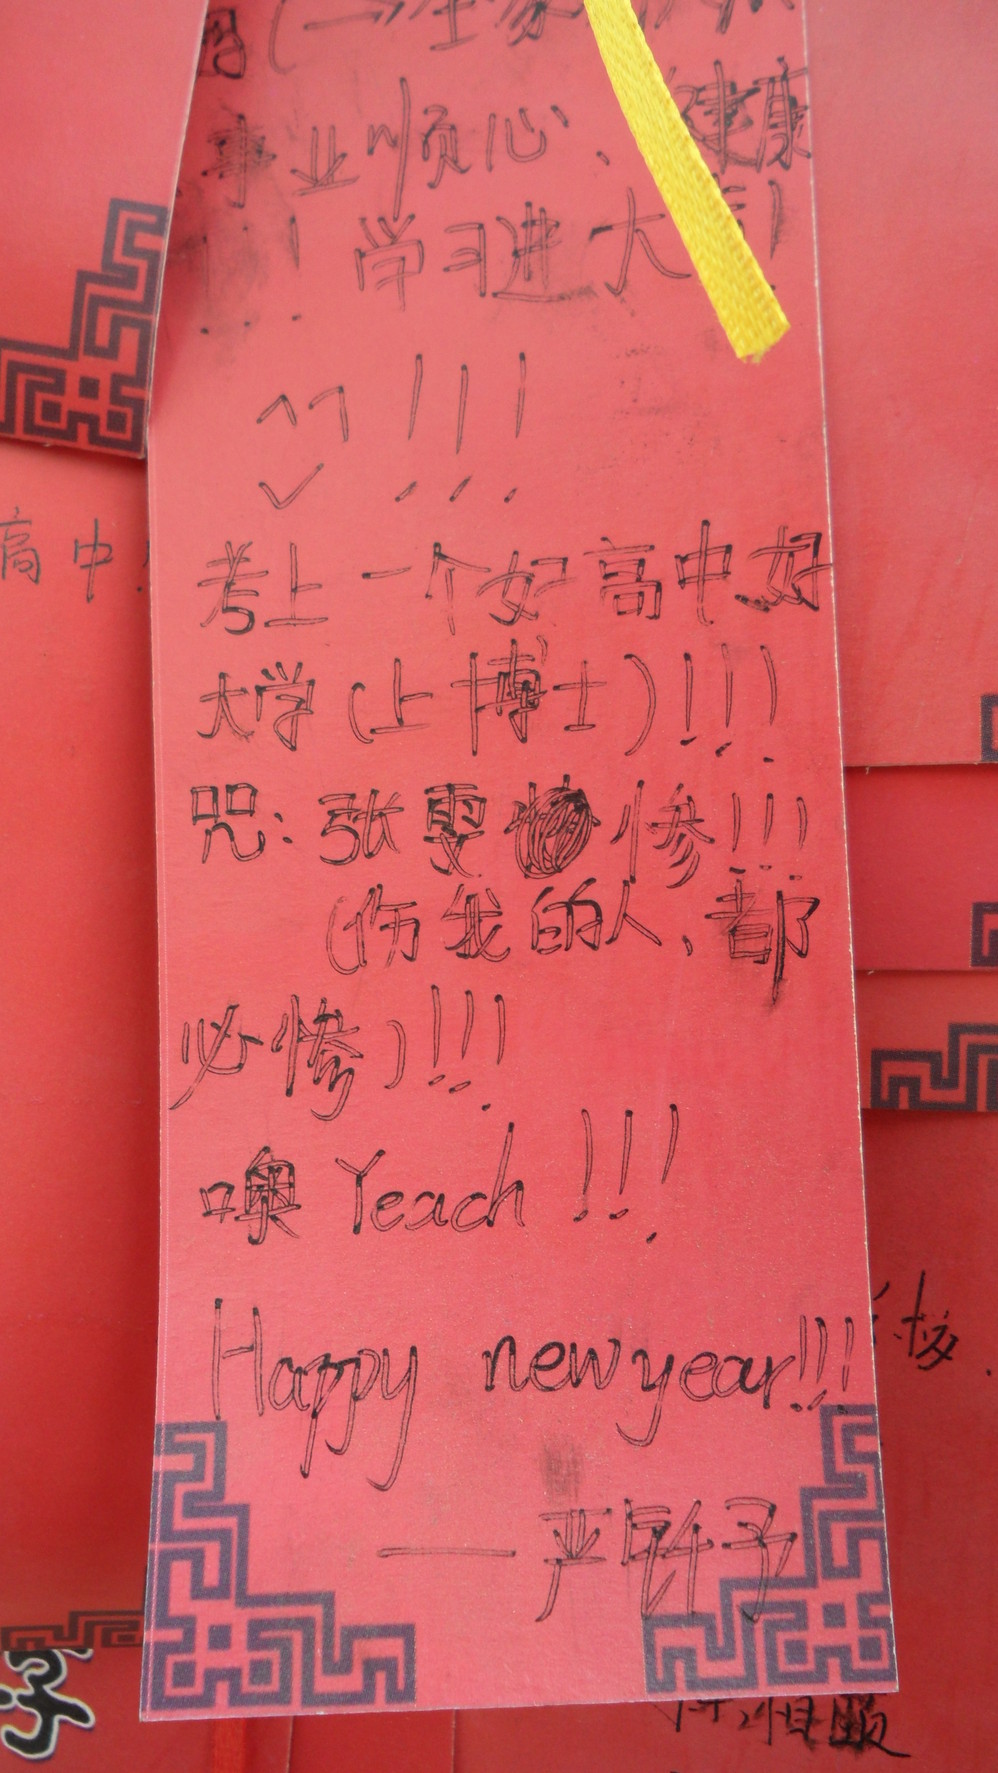 事业顺心、健康
!!! 学习进大!
!!!
考上一个好高中好
大学(上博士)!!!
咒:张雯惨!!!
(伤我的人、都
必惨)!!!
噢 Yeach !!!
Happy new year!!!
——严
高中
字